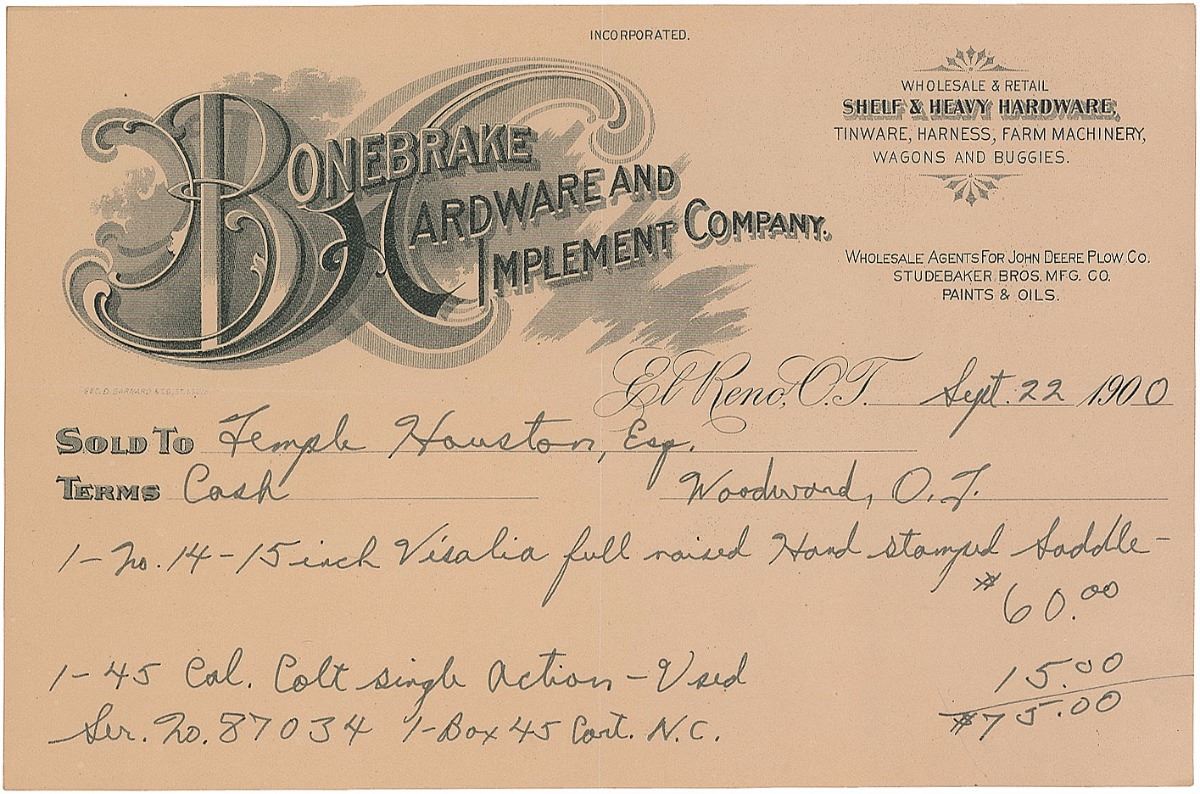 INCORPORATED.
BONEBRAKE
HARDWARE AND
IMPLEMENT COMPANY.
WHOLESALE & RETAIL
SHELF & HEAVY HARDWARE,
TINWARE, HARNESS, FARM MACHINERY,
WAGONS AND BUGGIES.
WHOLESALE AGENTS FOR JOHN DEERE PLOW CO.
STUDEBAKER BROS. MFG. CO.
PAINTS & OILS.
El Reno, O.T. Sept. 22 1900
SOLD TO Temple Houston, Esq.
TERMS Cash Woodward, O.T.
1-No. 14-15 inch Visalia full raised Hand stamped Saddle-
$60.00
1-45 Cal. Colt single Action-Used 15.00
Ser. No. 87034 1-Box 45 Cart. N.C. $75.00